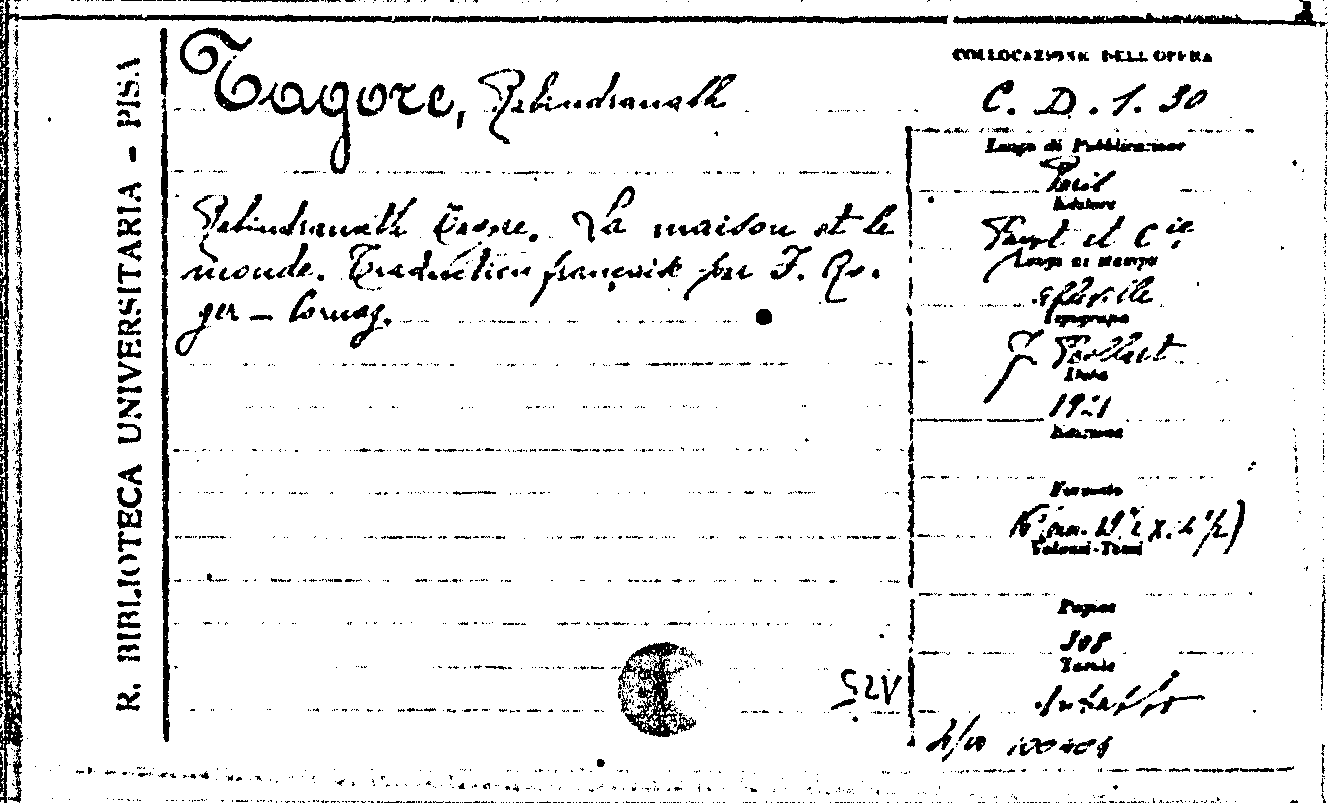 R. BIBLIOTECA UNIVERSITARIA - PISA
Tagore, Rabindranath
Rabindranath Tagore. La maison et le
monde. Traduction française par F. Ro-
ger - Cornaz.
COLLOCAZIONE DELL'OPERA
C. D. 1. 30
Luogo di Pubblicazione
Paris
Editore
Payot et Cie
Luogo di stampa
Abbeville
Tipografo
F. Paillart
Data
1921
Edizione
Formato
Volumi-Tomi
Pagine
308
Tavole